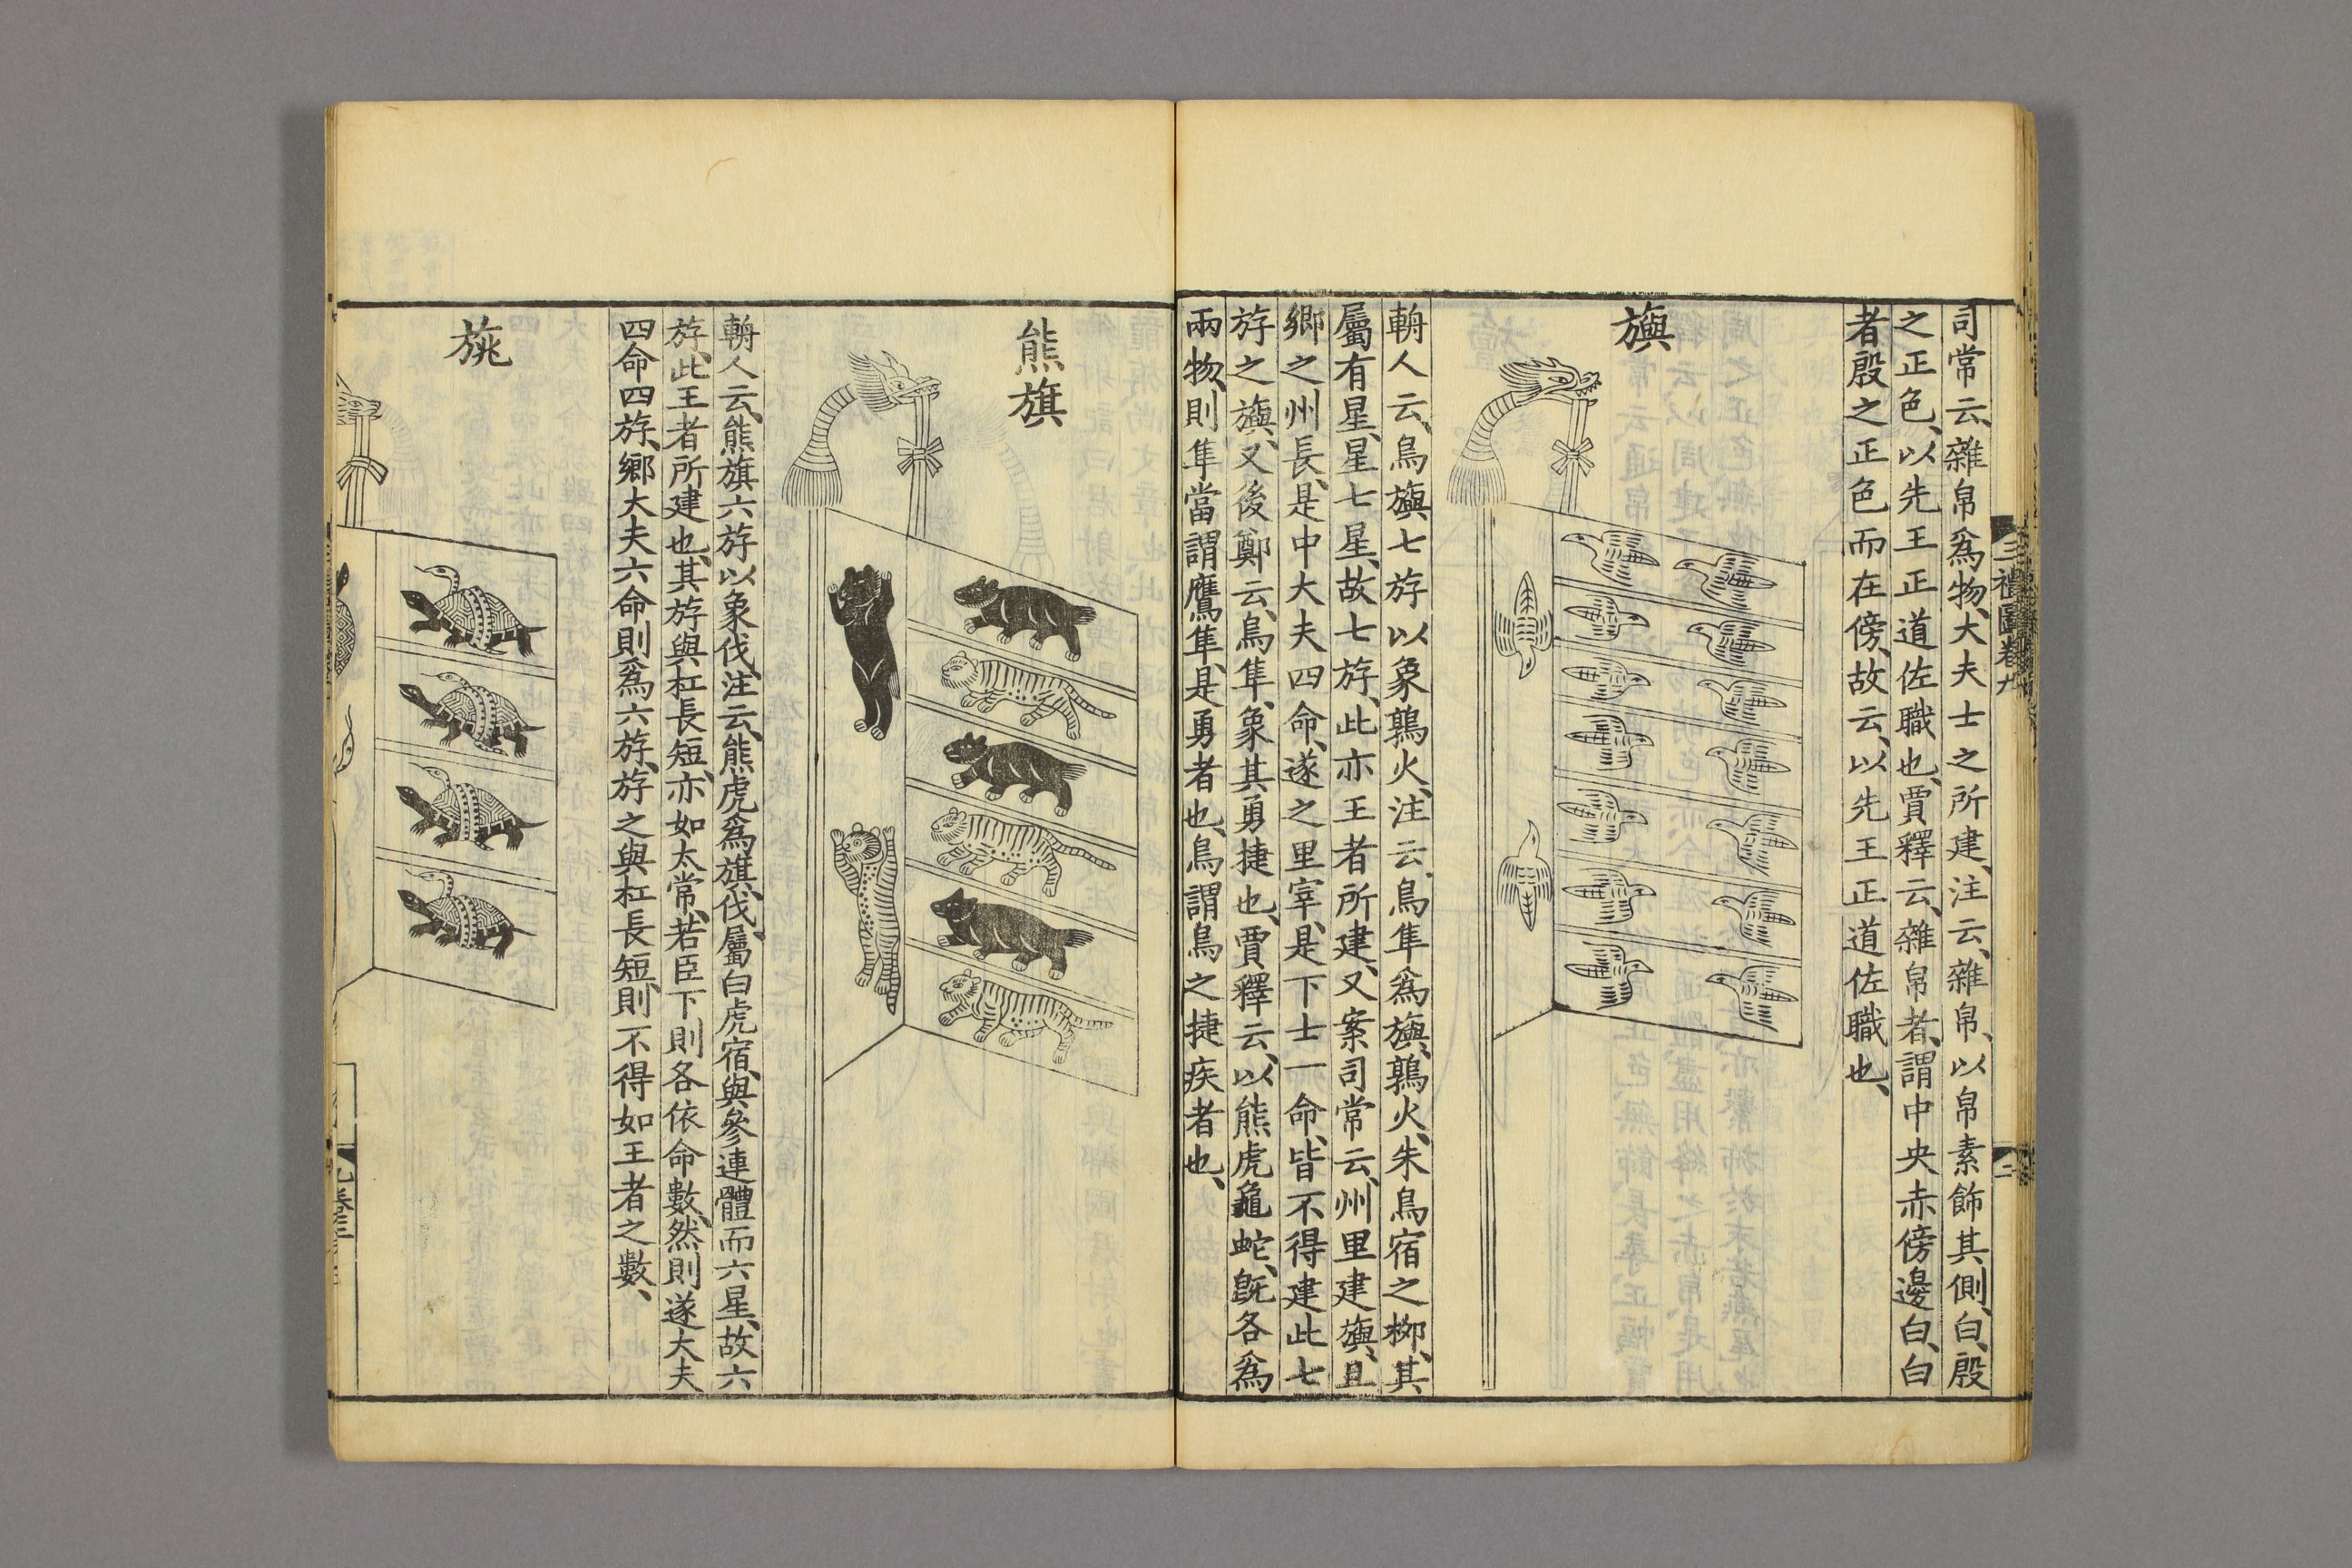 司常云、雜帛爲物、大夫士之所建、注云、雜帛、以帛素飾其側、白、殷
之正色、以先王正道佐職也、賈釋云、雜帛者、謂中央赤傍邊白、白
者殷之正色而在傍、故云、以先王正道佐職也、
旟
輈人云、鳥旟七斿以象鶉火、注云、鳥隼爲旟、鶉火、朱鳥宿之柳、其
屬有星、星七星、故七斿、此亦王者所建、又案司常云、州里建旟、且
鄉之州長、是中大夫四命、遂之里宰、是下士一命、皆不得建此七
斿之旟、又後鄭云、鳥隼、象其勇捷也、賈釋云、以熊虎龜蛇、旣各爲
兩物、則隼當謂鷹隼、是勇者也、鳥謂鳥之捷疾者也、
三禮圖卷九
二
熊旗
輈人云、熊旗六斿以象伐、注云、熊虎爲旗、伐、屬白虎宿、與參連體而六星、故六
斿、此王者所建也、其斿與杠長短、亦如太常、若臣下則各依命數、然則遂大夫
四命四斿、鄉大夫六命則爲六斿、斿之與杠長短、則不得如王者之數、
旐